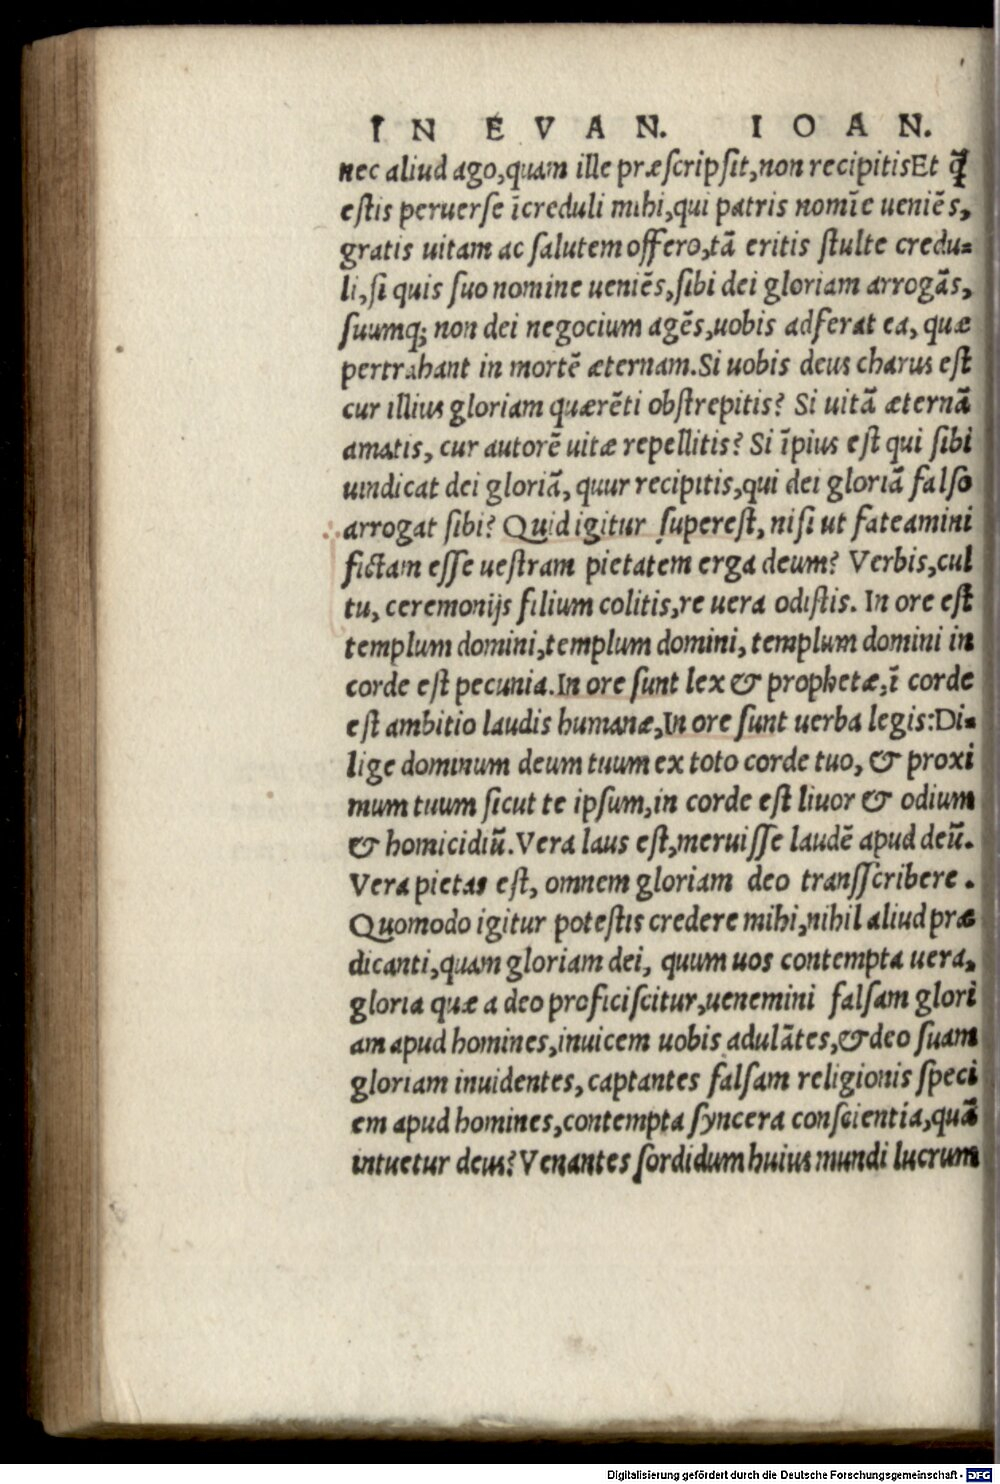 IN EVAN. IOAN.
nec aliud ago,quam ille præscripsit,non recipitisEt q̃
estis peruerse ĩcreduli mihi,qui patris nomĩe ueniẽs,
gratis uitam ac salutem offero,tã eritis stulte credu=
li,si quis suo nomine ueniẽs,sibi dei gloriam arrogãs,
suumq; non dei negocium agẽs,uobis adferat ea, quæ
pertrahant in mortẽ æternam.Si uobis deus charus est
cur illius gloriam quærẽti obstrepitis? Si uitã æternã
amatis, cur autorẽ uitæ repellitis? Si ĩpius est qui sibi
uindicat dei gloriã, quur recipitis,qui dei gloriã falso
arrogat sibi? Quid igitur superest, nisi ut fateamini
fictam esse uestram pietatem erga deum? Verbis,cul
tu, ceremonijs filium colitis,re uera odistis. In ore est
templum domini,templum domini, templum domini in
corde est pecunia.In ore sunt lex & prophetæ,ĩ corde
est ambitio laudis humanæ,In ore sunt uerba legis:Di=
lige dominum deum tuum ex toto corde tuo, & proxi
mum tuum sicut te ipsum,in corde est liuor & odium
& homicidiũ.Vera laus est,meruisse laudẽ apud deũ.
Vera pietas est, omnem gloriam deo transscribere .
Quomodo igitur potestis credere mihi,nihil aliud præ
dicanti,quam gloriam dei, quum uos contempta uera,
gloria quæ a deo proficiscitur,uenemini falsam glori
am apud homines,inuicem uobis adulãtes,& deo suam
gloriam inuidentes, captantes falsam religionis speci
em apud homines,contempta syncera conscientia,quã
intuetur deus? Venantes sordidum huius mundi lucrum
Digitalisierung gefördert durch die Deutsche Forschungsgemeinschaft - DFG